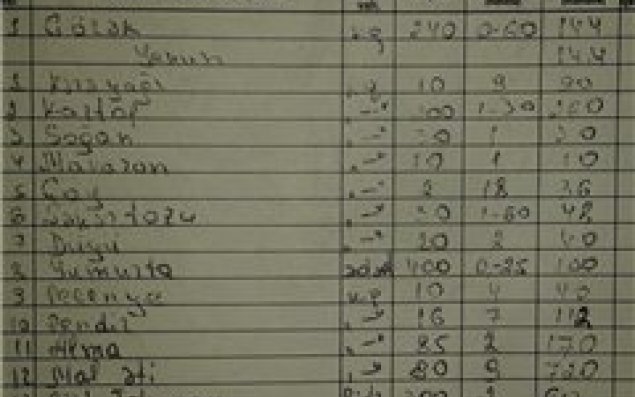 1 Çörək kq 240 0-60 144
Yekun 144
1 K/yağı kq 10 9 90
2 Kartof 200 1-30 260
3 Soğan 30 1 30
4 Makaron 10 1 10
5 Çay 2 18 36
6 Şəkər tozu 30 1-60 48
7 Düyü 20 2 40
8 Yumurta ədəd 400 0-25 100
9 Peçenye kq 10 4 40
10 Pendir 16 7 112
11 Alma 85 2 170
12 Mal əti 80 9 720